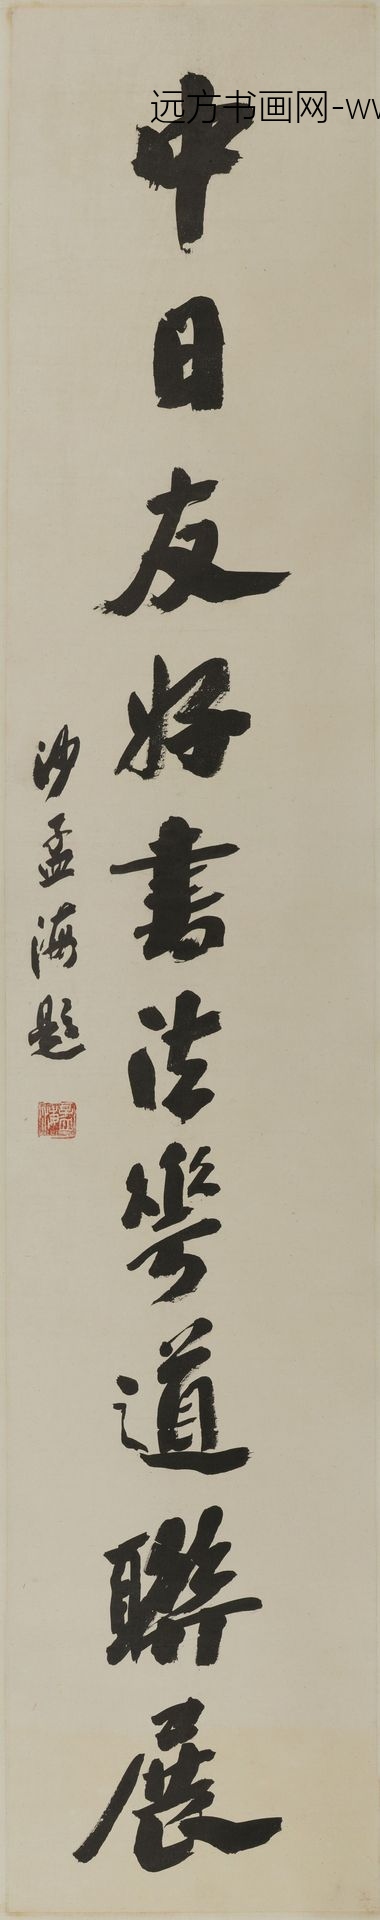 远方书画网-ww
中日友好書法華道聯展
沙孟海題